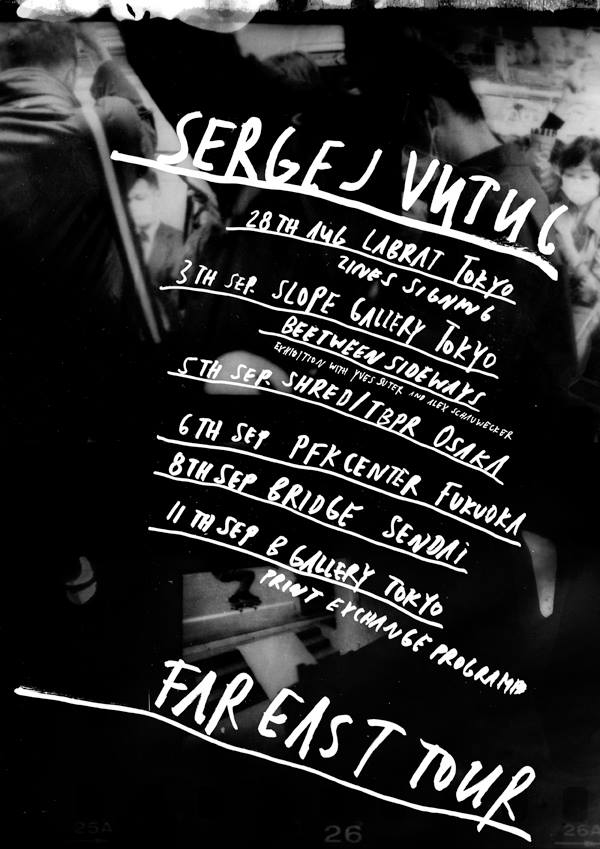 SERGEJ VUTUC
28TH AUG LABRAT TOKYO
ZINES SIGNING
3TH SEP. SLOPE GALLERY TOKYO
BEETWEEN SIDEWAYS
EXHIBITION WITH YVES SUTER AND ALEX SCHAUWECKER
5TH SEP. SHRED/TBPR OSAKA
6TH SEP PFK CENTER FUKUOKA
8TH SEP BRIDGE SENDAI
11TH SEP B GALLERY TOKYO
PRINT EXCHANGE PROGRAM
FAR EAST TOUR
25A 26 26A